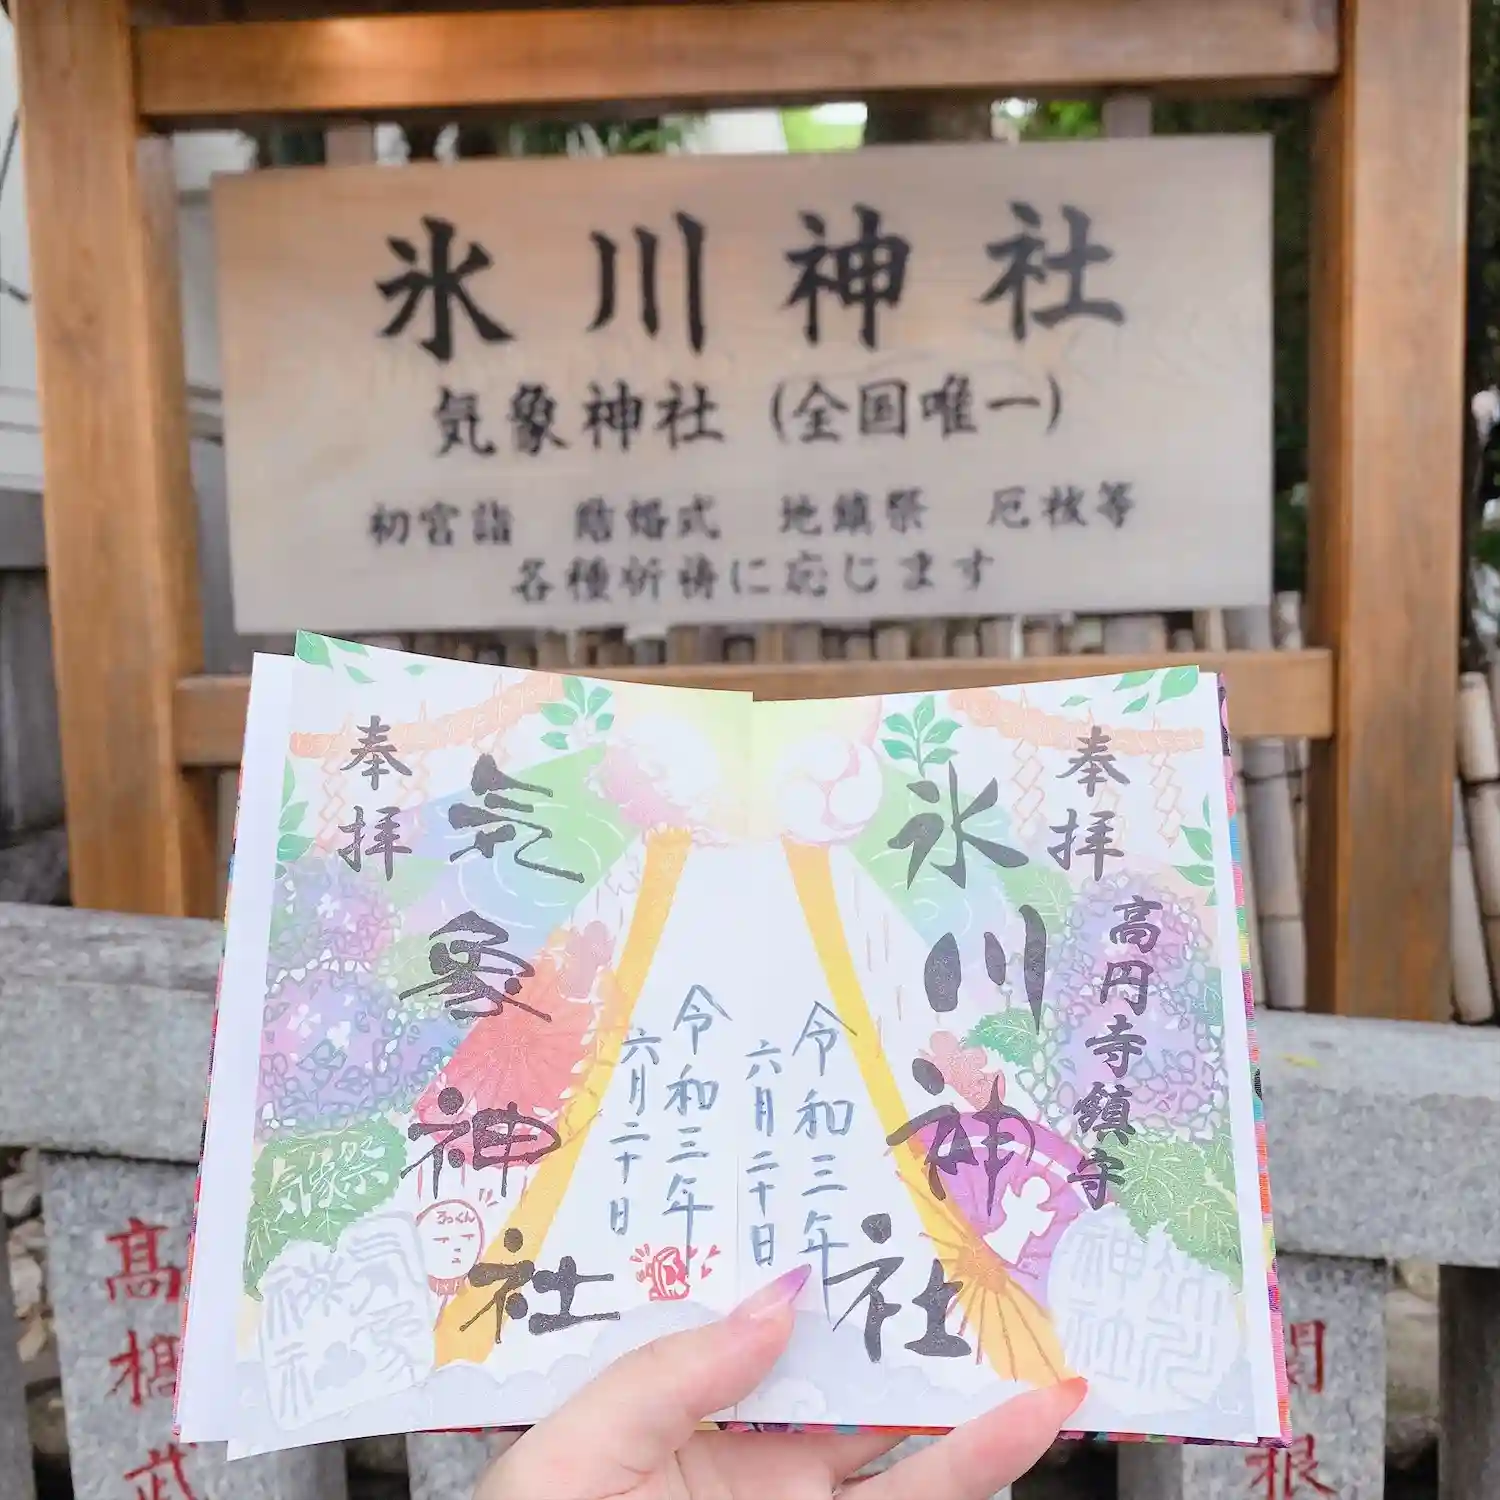 氷川神社
気象神社 (全国唯一)
初宮詣 結婚式 地鎮祭 厄祓等
各種祈祷に応じます
奉拝
高円寺鎮守
氷川神社
令和三年
六月二十日
奉拝
気象神社
令和三年
六月二十日
気象祭
るっくん
氷川
神社
気象
神社
高橋武
関根